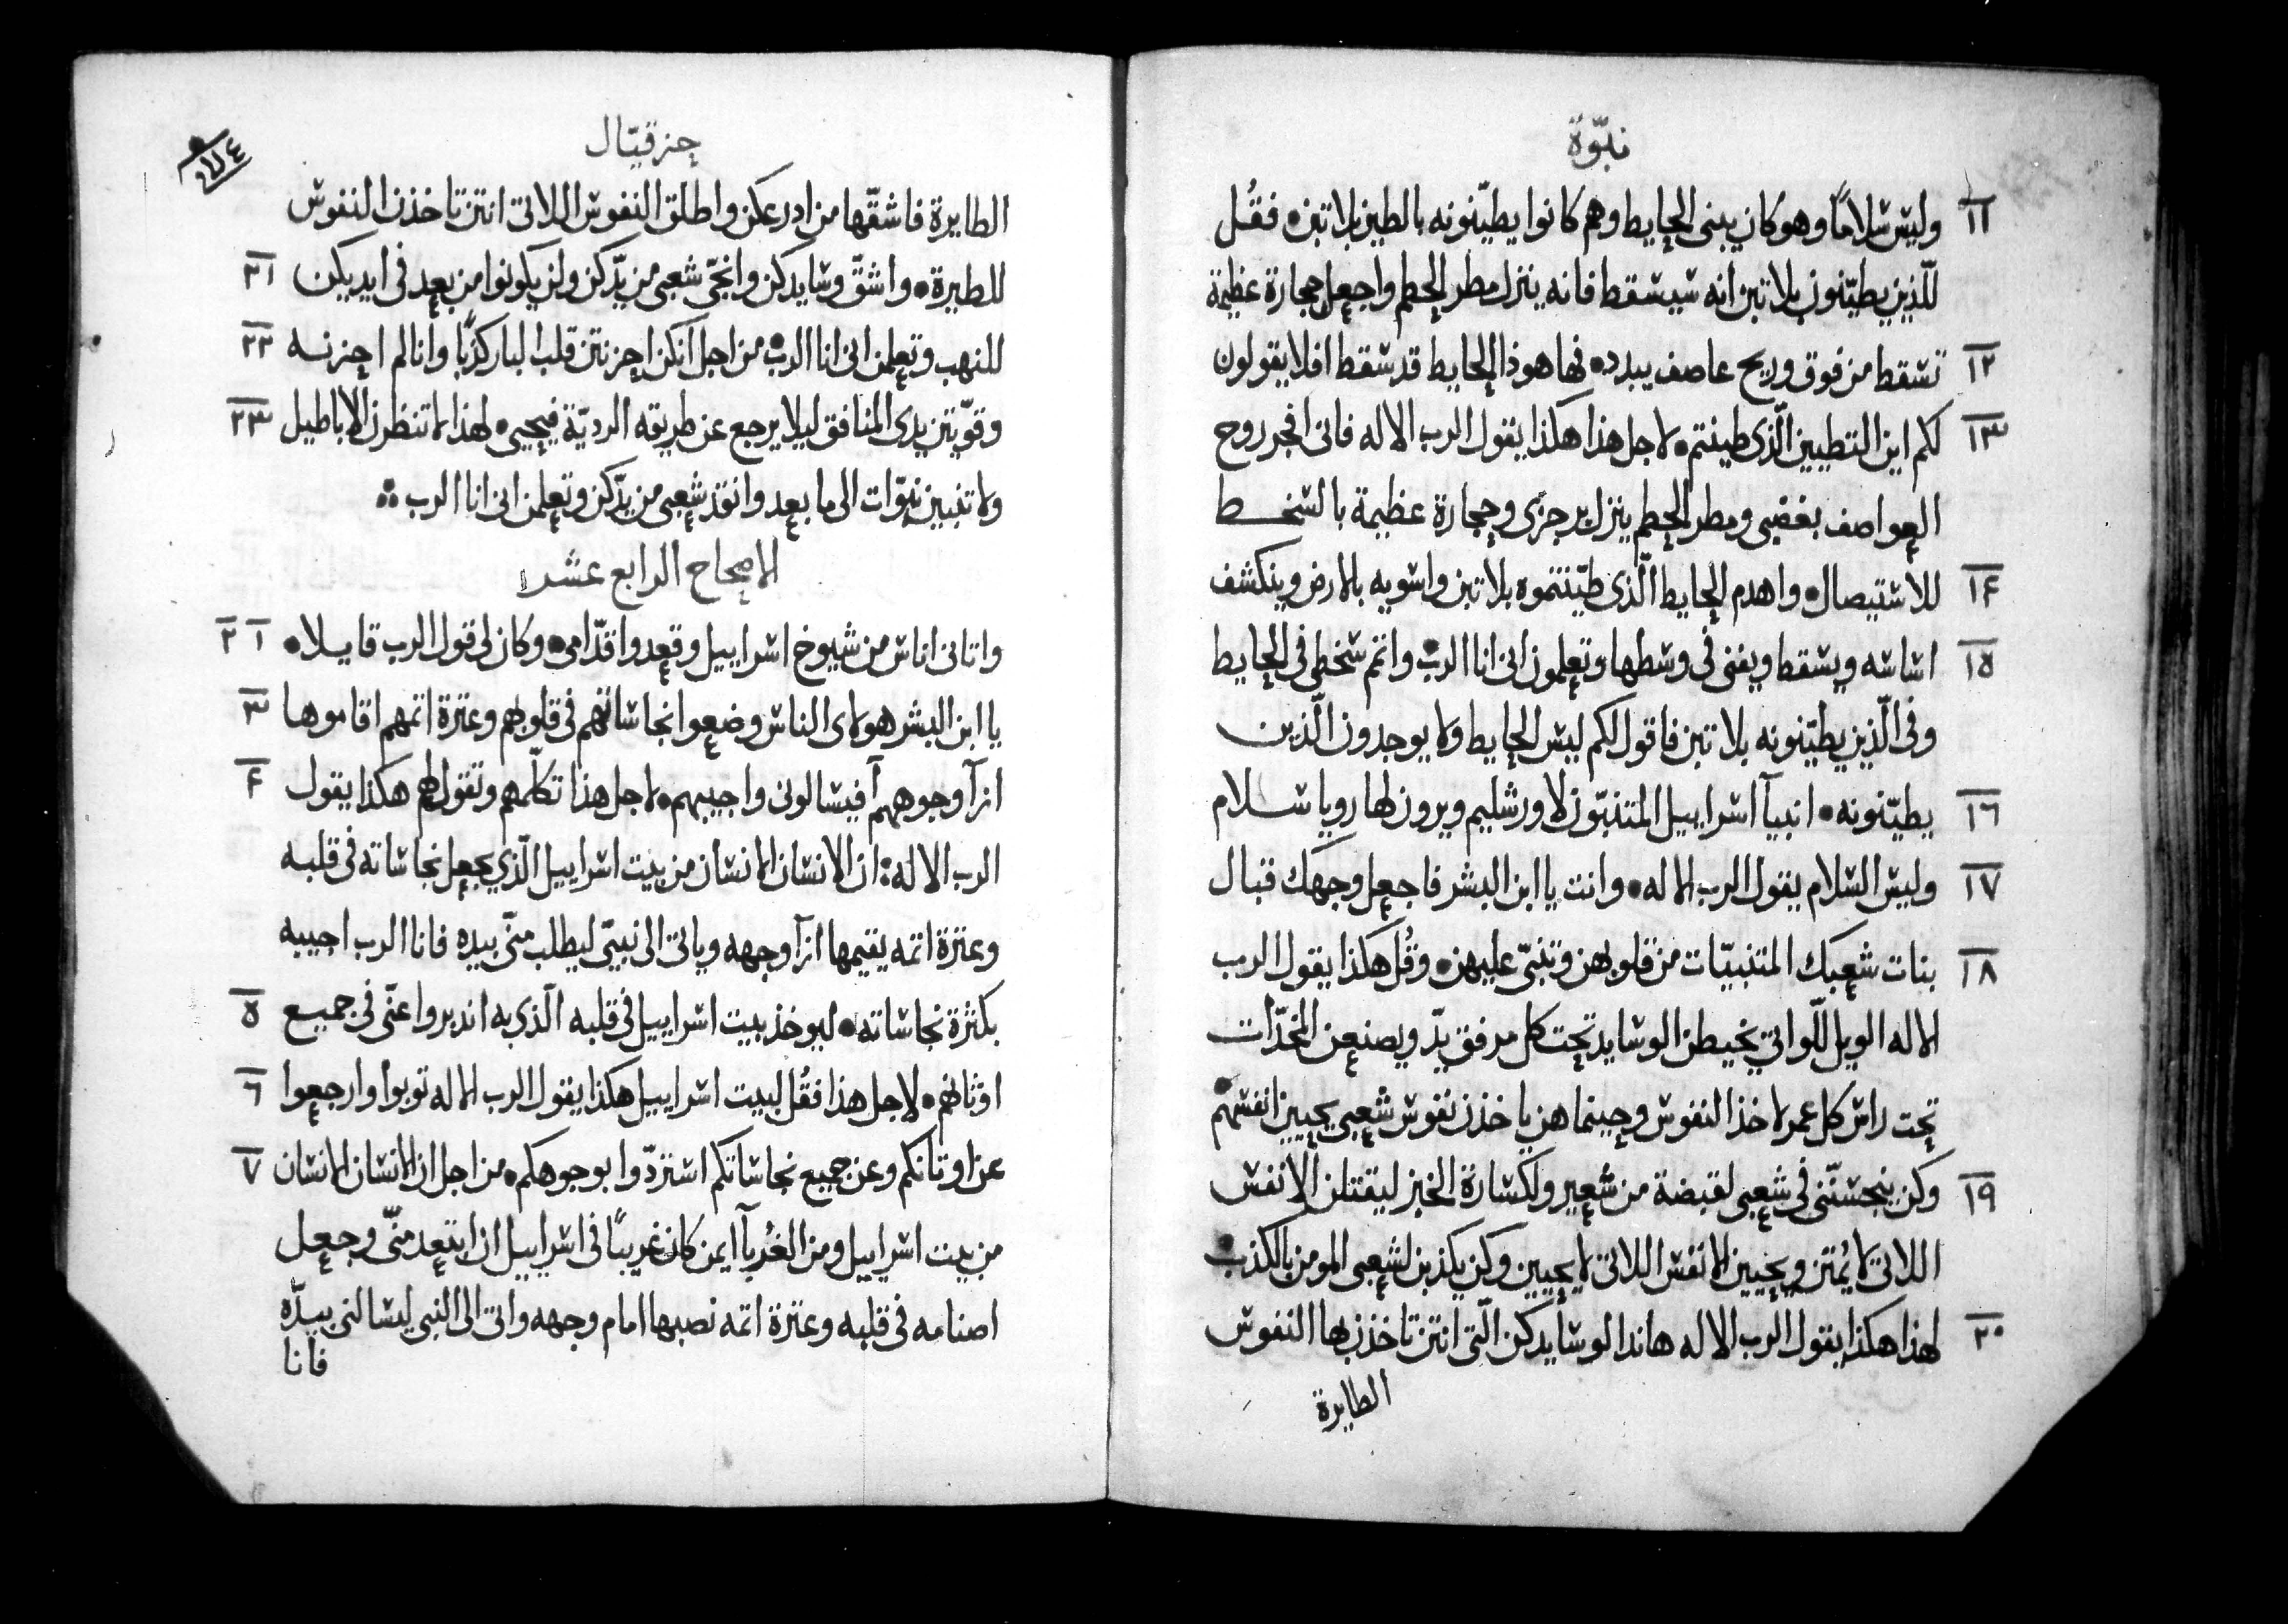 نبوّة
١١ وليس سلامًا وهو كان يبنى الحايط وهم كانوا يطيّنونه بالطين بلا تبن۰ فقُل
للّذين يطيّنون بلا تبن انه سيسقط فانه ينزل مطر الحطم واجعل حجارة عظيمة
١٢ تسقط من فوق وريح عاصف يبدد۰ فها هوذا الحايط قد سقط افلا يقولون
١٣ لكم اين التطيين الّذى طينتم۰ لاجل هذا هكذا يقول الرب الاله فانى افجر روح
العواصف بغضبى ومطر الحطم ينزل برجزى وحجارة عظيمة بالسخط
١٤ للاستيصال۰ واهدم الحايط الّذى طيّنتموه بلا تبن واسويه بالارض وينكشف
١٥ اساسه ويسقط ويفنى فى وسطها وتعلمون انى انا الرب۰ واتمّ سخطى فى الحايط
وفى الّذين يطيّنونه بلا تبن فاقول لكم ليس الحايط ولا يوجدون الّذين
١٦ يطيّنونه۰ انبيآ اسراييل المتنبّون لاورشليم ويرون لها رويا سلام
١٧ وليس السلام يقول الرب الاله۰ وانت يا ابن البشر فاجعل وجهك قبال
١٨ بنات شعبك المتنبيّات من قلوبهن وتنبّى عليهن۰ وقُل هكذا يقول الرب
الاله الويل للّواتى يخيطن الوسايد تحت كل مرفق يدّ ويصنعن المخدّات
تحت راس كل عمر لاخذ النفوس وحينما هن ياخذن نفوس شعبى يحيين انفسهم۰
١٩ وكن ينجسنّنى فى شعبى لقبضة من شعير ولكسارة الخبز ليقتلن الانفس
اللاتى لا يُمتن ويحيين الانفس اللاتى لا يحيين وكن يكذبن لشعبى المومن بالكذب۰
٢٠ لهذا هكذا يقول الرب الاله هاندا لوسايدكن الّتى انتن تاخذن بها النفوس
الطايرة
حزقيّال
٥٧٤
الطايرة فاشقّها من ادرعكن واطلق النفوس اللاتى انتن تاخذن النفوس
٢١ للطيرة۰ واشقّ وسايدكن وانجّى شعبى من يدّكن ولن يكونوا من بعد فى ايديكن
٢٢ للنهب وتعلمن انى انا الرب۰ من اجل انكن احزنتن قلب البار كذبًا وانا لم احزنه
٢٣ وقوّيتن يدى المنافق ليلا يرجع عن طريقه الرديّة فيحيى۰ لهذا لا تنظرن الاباطيل
ولا تنبين نبوّات الى ما بعد وانقذ شعبى من يدّكن وتعلمن انى انا الرب ۰
الاصحاح الرابع عشر
١ ٢ واتانى اناس من شيوخ اسراييل وقعدوا قدّامى۰ وكان لى قول الرب قايلا۰
٣ يا ابن البشر هولاى الناس وضعوا نجاساتهم فى قلوبهم وعثرة اثمهم اقاموها
٤ ازآ وجوههم آفيسالونى واجيبهم۰ لاجل هذا تكلّمهم وتقول لهم هكذا يقول
الرب الاله: ان الانسان الانسان من بيت اسراييل الّذى يجعل نجاساته فى قلبه
وعثرة اثمه يقيمها ازآ وجهه وياتى الى نبيّى ليطلب منّى بيده فانا الرب اجيبه
٥ بكثرة نجاساته۰ ليوخذ بيت اسراييل فى قلبه الّذى به اندبروا عنّى فى جميع
٦ اوثانهم۰ لاجل هذا فقُل لبيت اسراييل هكذا يقول الرب الاله توبوا وارجعوا
٧ عن اوثانكم وعن جميع نجاساتكم استردّوا بوجوهكم۰ من اجل ان الانسان الانسان
من بيت اسراييل ومن الغُربآ ايمن كان غريبًا فى اسراييل ان ابتعد منّى وجعل
اصنامه فى قلبه وعثرة اثمه نصبها امام وجهه واتى الى النبى ليسالنى بيدّه
فانا